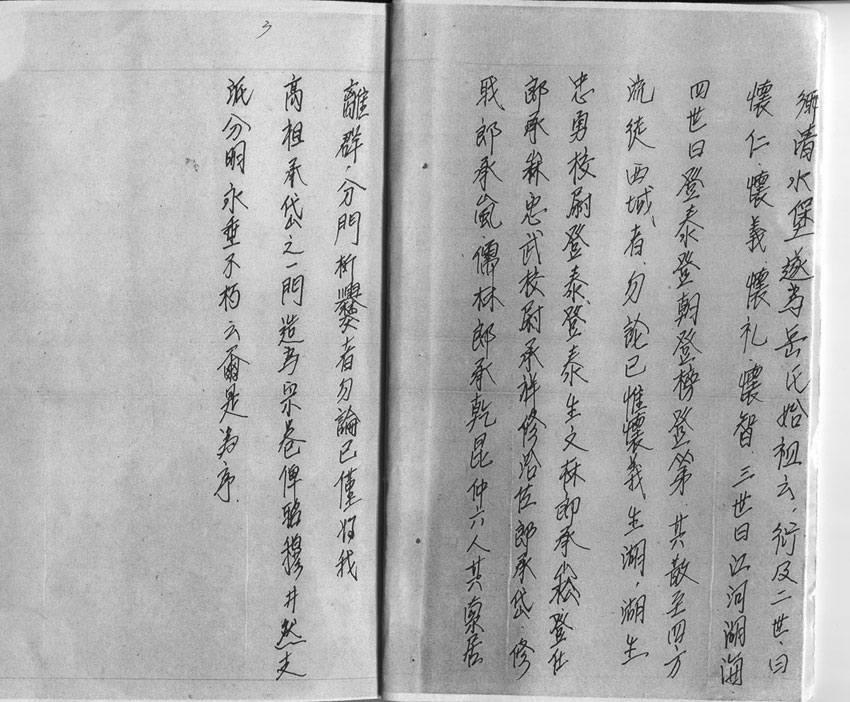 鄉清水堡遂为岳氏始祖云，衍及二世，曰
懷仁、懷義、懷礼、懷智．三世曰江、河、湖、海．
四世曰登泰登朝登榜登第．其散至四方
流徒西域者、勿論已惟懷義、生湖、湖生
忠勇校尉登泰、登泰生文林郎承崧、登仕
郎承秝忠武校尉承祥修洽佐郎承岱．修
戝郎承嵐、儒林郎承乾昆仲六人其索居
離群，分門析爨者勿論已僅將我
高祖承岱之一門造为宗卷俾昭穆井然支
派分明永垂不朽云爾是为序．
3